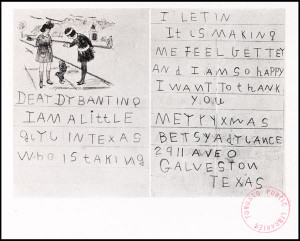 DEAT DYBANTING
I AM A LITTLE
GIYL IN TEXAS
WHO IS TAKING
I'LETIN
IT IS MAKING
ME FEEL BETTEY
And I AM SO HAPPY
I WANT TO THANK
YOU
MEYYYXMAS
BETSY AdYLANCE
2911 AVE O
GALVESTON
TEXAS
TORONTO PUBLIC
LIBRARIES